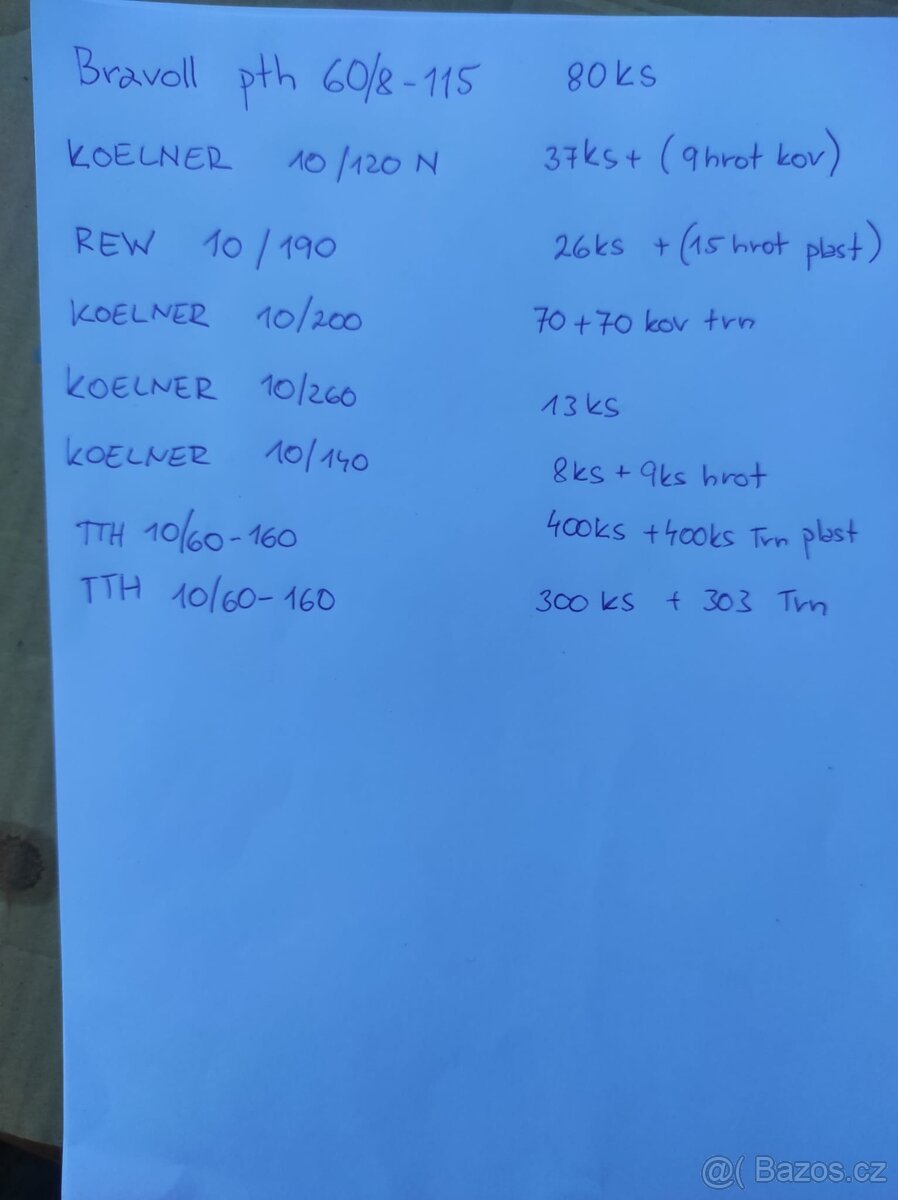 Bravoll pth 60/8-115 80ks
KOELNER 10/120 N 37ks + (9hrot kov)
REW 10/190 26ks + (15 hrot plast)
KOELNER 10/200 70+70 kov trn
KOELNER 10/260 13ks
KOELNER 10/140 8ks + 9ks hrot
TTH 10/60-160 400ks +400ks Trn plast
TTH 10/60-160 300 ks + 303 Trn
@( Bazos.cz